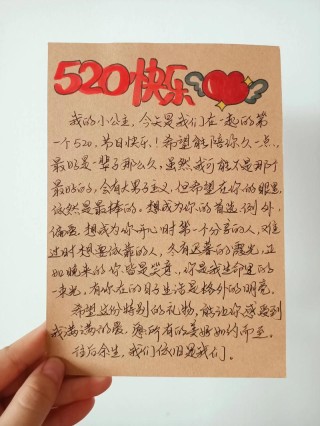 520快乐
我的小公主,今天是我们在一起的第
一个520,节日快乐!希望能陪你久一点,
最好是一辈子那么久,虽然我可能不是那个
最好的,会有大男子主义,但希望在你的眼里
依然是最棒的,想成为你的首选,例外,
偏爱,想成为你开心时第一个分享的人,难
过时想要依靠的人,冬有迟暮的霞光,正
如晚来的你,皆是惊喜,你是我生命里的
一束光,有你在的日子生活是格外的明亮。
希望这份特别的礼物,能让你感受到
我满满的爱,愿所有的美好如约而至。
往后余生,我们依旧是我们。